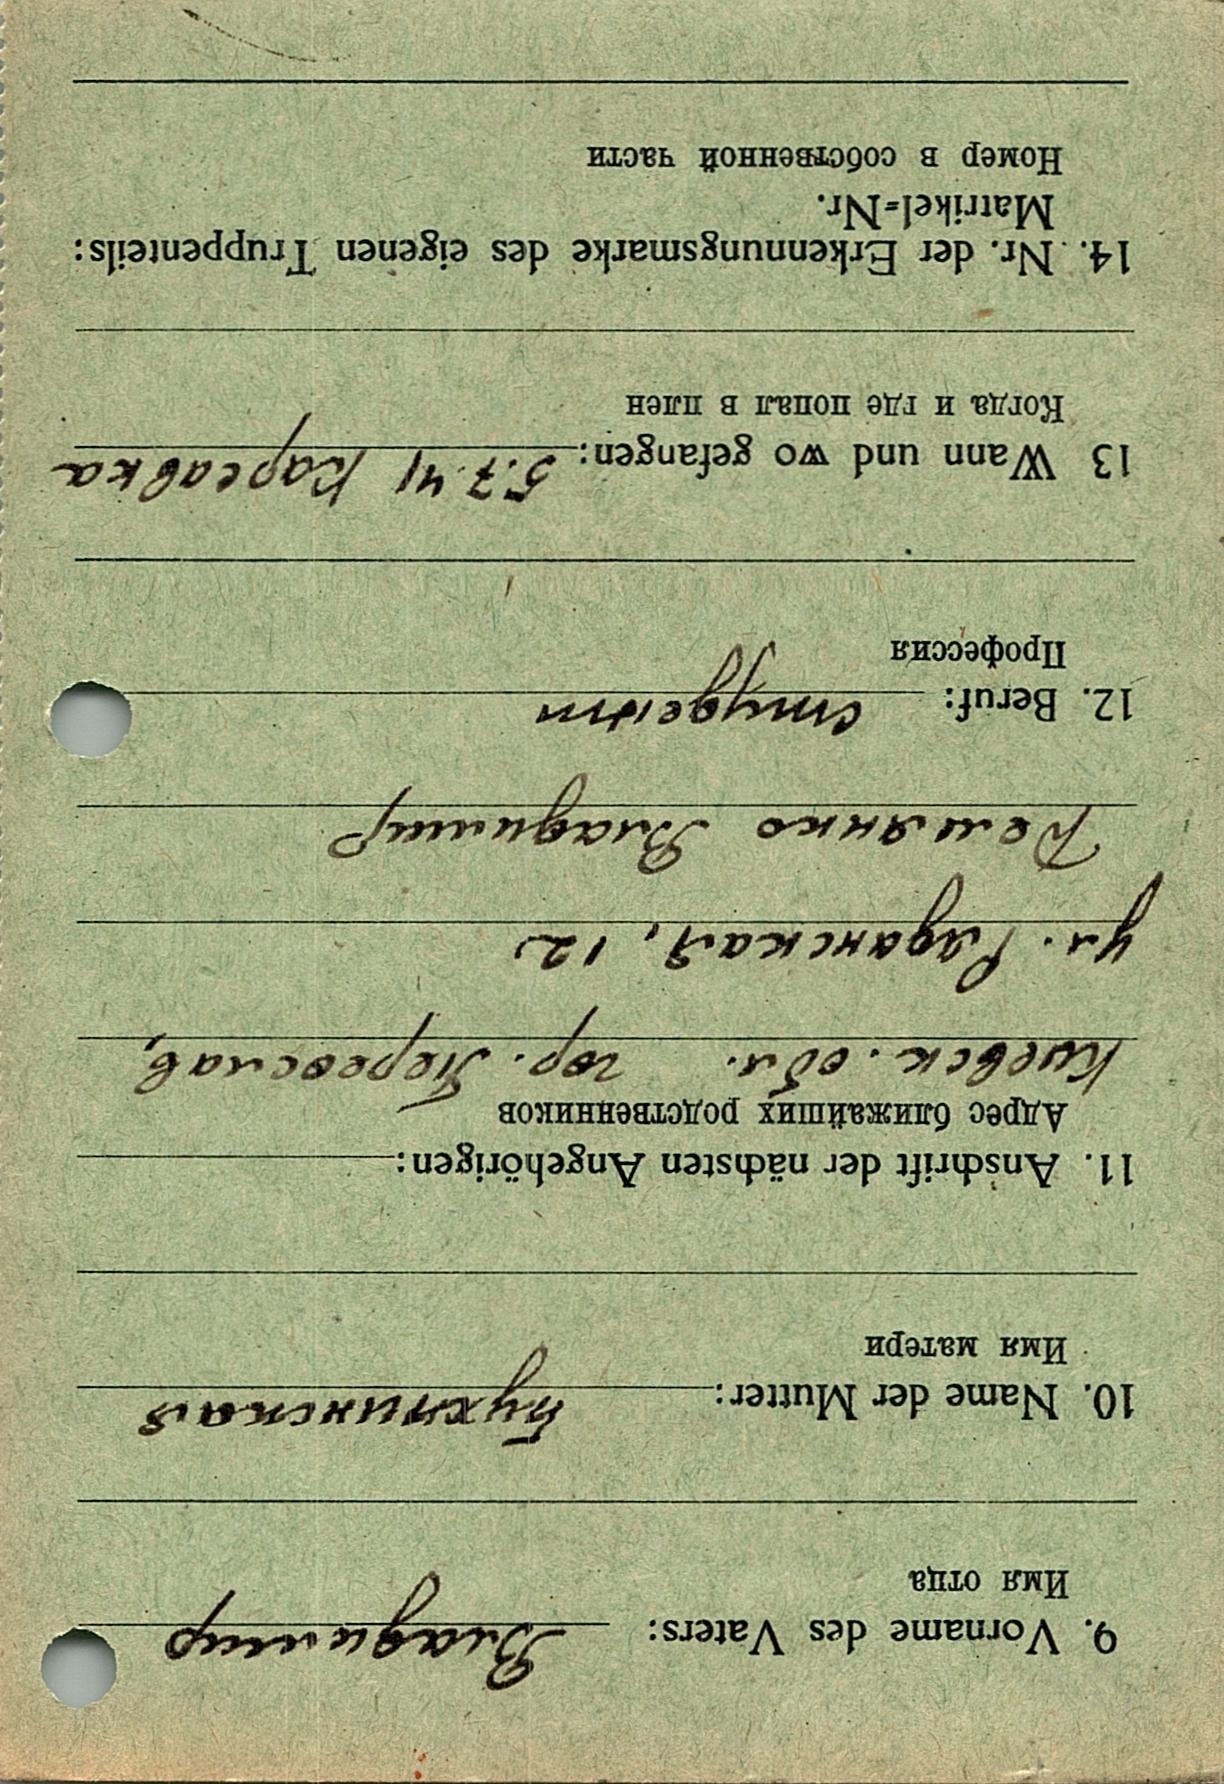 9. Vorname des Vaters: Владимир
Имя отца
10. Name der Mutter: Бухтинская
Имя матери
11. Anschrift der nächsten Angehörigen:
Адрес ближайших родственников
Киевск. обл. гор. Переяслав,
ул. Радянская, 12
Владимир
12. Beruf: студент
Профессия
13 Wann und wo gefangen: 5.7.41
Когда и где попал в плен
14. Nr. der Erkennungsmarke des eigenen Truppenteils:
Matrikel=Nr.
Номер в собственной части